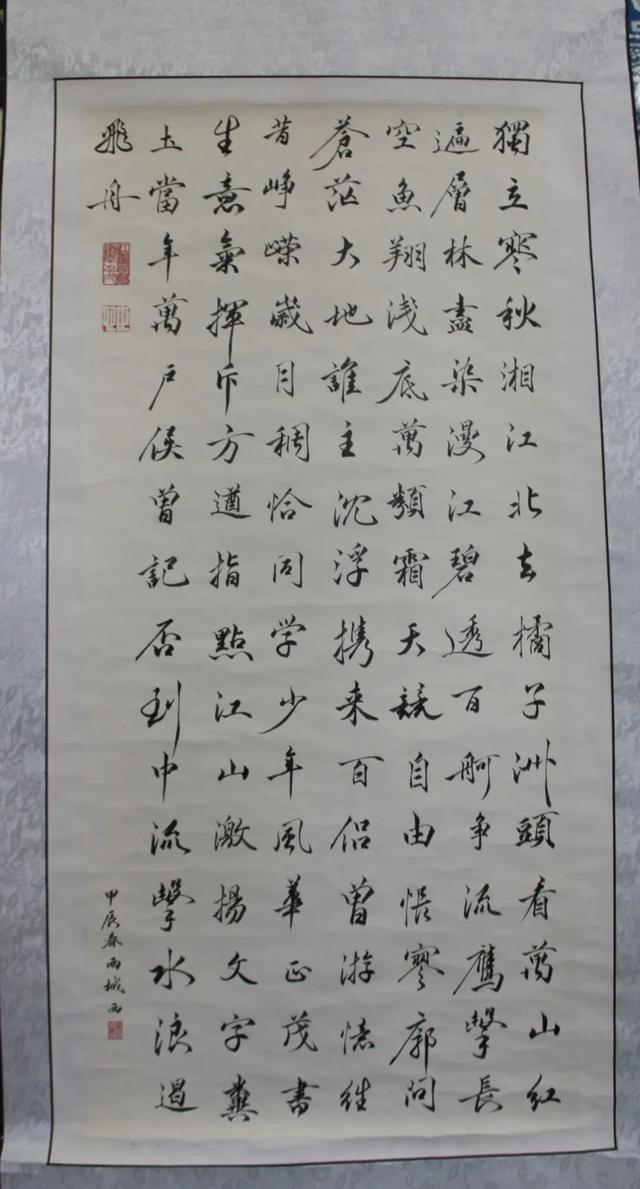 獨立寒秋湘江北去橘子洲頭看萬山紅
遍層林盡染漫江碧透百舸爭流鷹擊長
空魚翔淺底萬類霜天競自由悵寥廓問
蒼茫大地誰主沈浮携来百侣曾游憶往
昔崢嶸歲月稠恰同学少年風華正茂書
生意氣揮斥方遒指點江山激揚文字糞
土當年萬户侯曾記否到中流擊水浪遏
飛舟
甲辰春雨城西